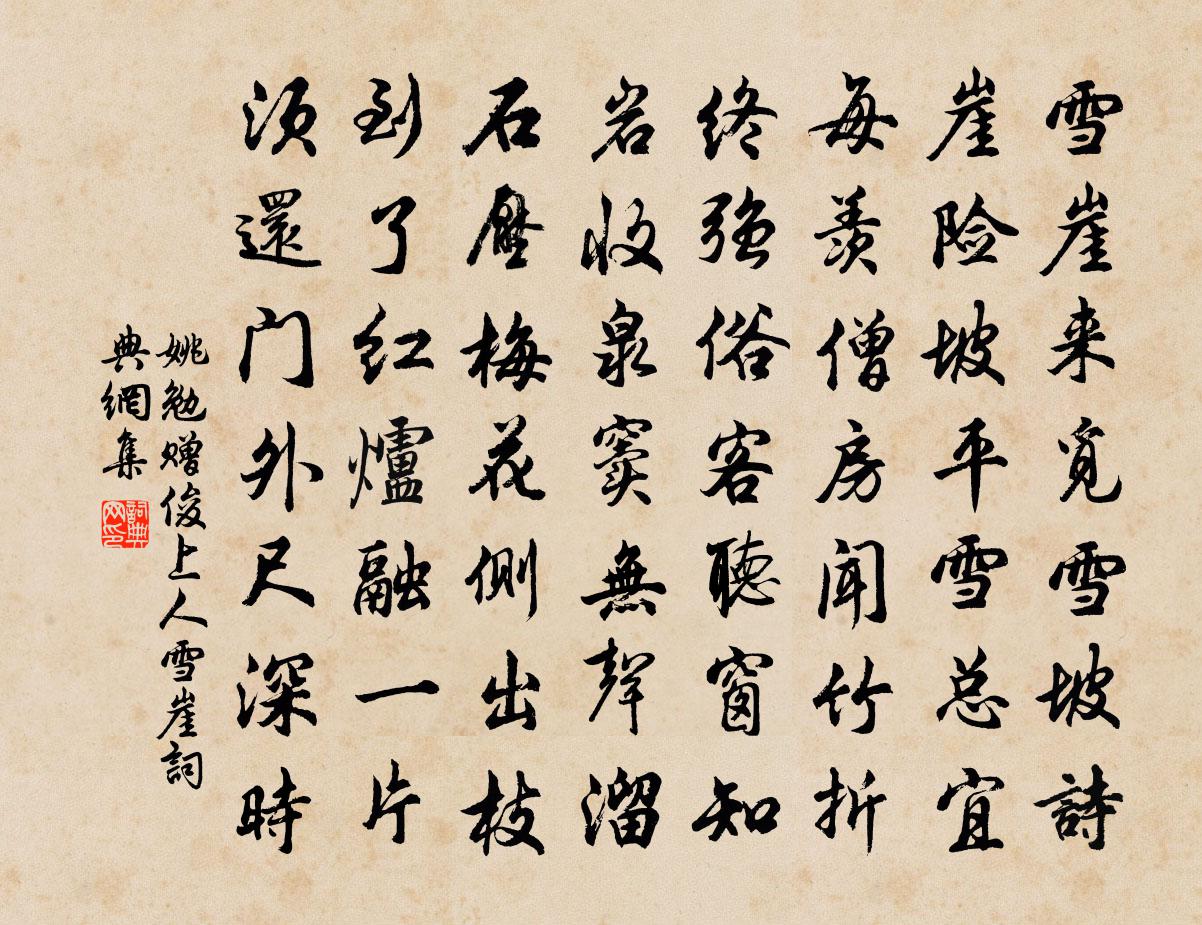 雪崖来覓雪坡詩
崖险坡平雪总宜
每羨僧房闻竹折
终强俗客聽窗知
岩收泉窦無聲溜
石壓梅花側出枝
到了红爐融一片
须還门外尺深時
姚勉赠俊上人雪崖詞
典網集
詞典网印